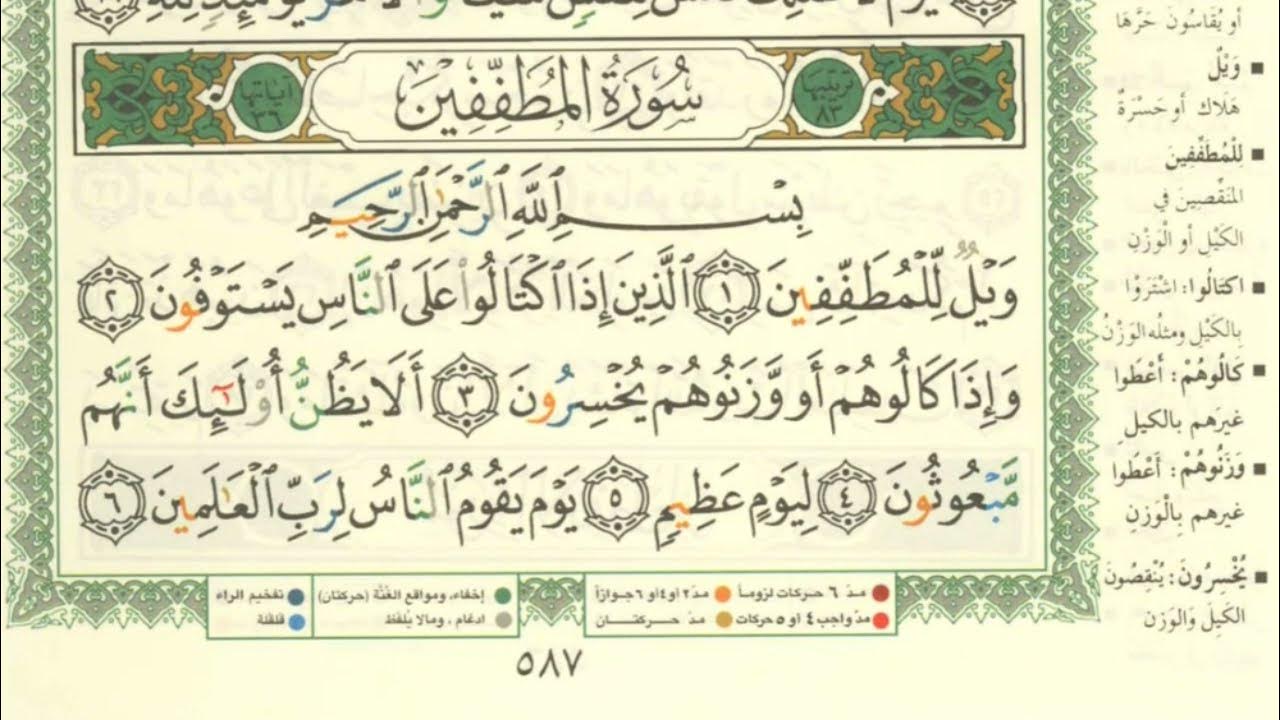 سُورَةُ المُطَفِّفِينَ
ترتيبها ٨٣
آياتها ٣٦
بِسْمِ ٱللَّهِ ٱلرَّحْمَٰنِ ٱلرَّحِيمِ
وَيْلٌ لِّلْمُطَفِّفِينَ ١ ٱلَّذِينَ إِذَا ٱكْتَالُوا۟ عَلَى ٱلنَّاسِ يَسْتَوْفُونَ ٢
وَإِذَا كَالُوهُمْ أَو وَّزَنُوهُمْ يُخْسِرُونَ ٣ أَلَا يَظُنُّ أُو۟لَٰٓئِكَ أَنَّهُم
مَّبْعُوثُونَ ٤ لِيَوْمٍ عَظِيمٍ ٥ يَوْمَ يَقُومُ ٱلنَّاسُ لِرَبِّ ٱلْعَٰلَمِينَ ٦
أو يُقَاسُونَ حَرَّهَا
وَيْلٌ
هَلَاك أو حَسْرَةٌ
لِلْمُطَفِّفِينَ
المُنَقِّصِينَ فِي
الكَيْلِ أو الْوَزْنِ
اكتَالُوا: اشْتَرَوْا
بِالكَيْلِ ومثلُه الوَزْنُ
كَالُوهُمْ: أَعْطَوا
غيرَهم بالكيلِ
وَزَنُوهُمْ: أَعْطَوا
غيرهم بِالْوَزْنِ
يُخْسِرُونَ: يُنْقِصُونَ
الكَيلَ وَالوَزن
مدّ ٦ حركات لزوماً
مدّ ٢ او ٤ او ٦ جوازاً
مدّ واجب ٤ أو ٥ حركات
مدّ حركتان
إخفاء، ومواقع الغُنَّة (حركتان)
ادغام، ومالا يُلفَظ
تفخيم الراء
قلقلة
٥٨٧